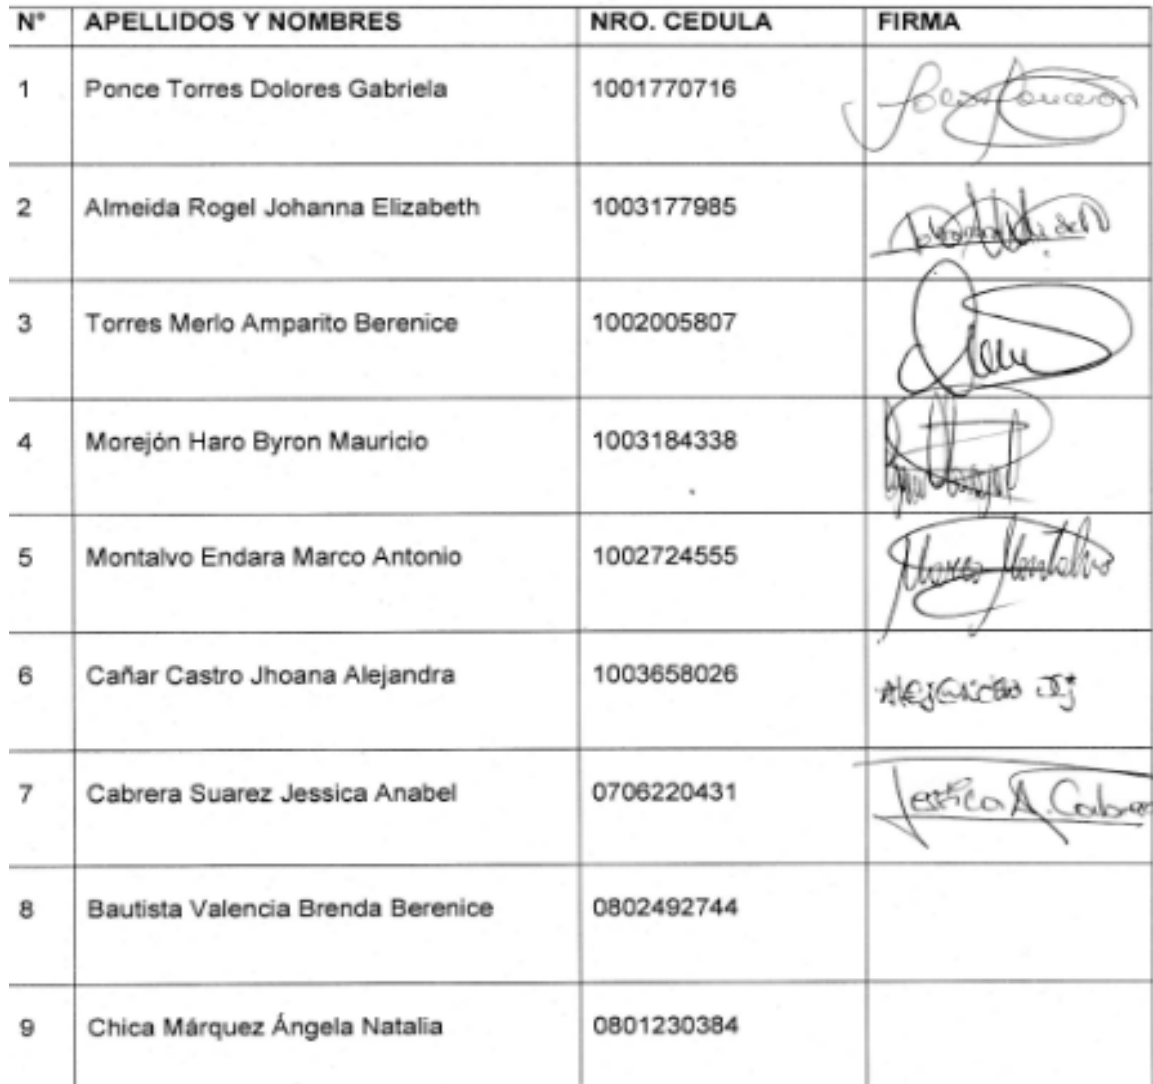 N° APELLIDOS Y NOMBRES NRO. CEDULA FIRMA
1 Ponce Torres Dolores Gabriela 1001770716
2 Almeida Rogel Johanna Elizabeth 1003177985
3 Torres Merlo Amparito Berenice 1002005807
4 Morejón Haro Byron Mauricio 1003184338
5 Montalvo Endara Marco Antonio 1002724555 Marco Montalvo
6 Cañar Castro Jhoana Alejandra 1003658026
7 Cabrera Suarez Jessica Anabel 0706220431 Jessica A. Cabrera
8 Bautista Valencia Brenda Berenice 0802492744
9 Chica Márquez Ángela Natalia 0801230384